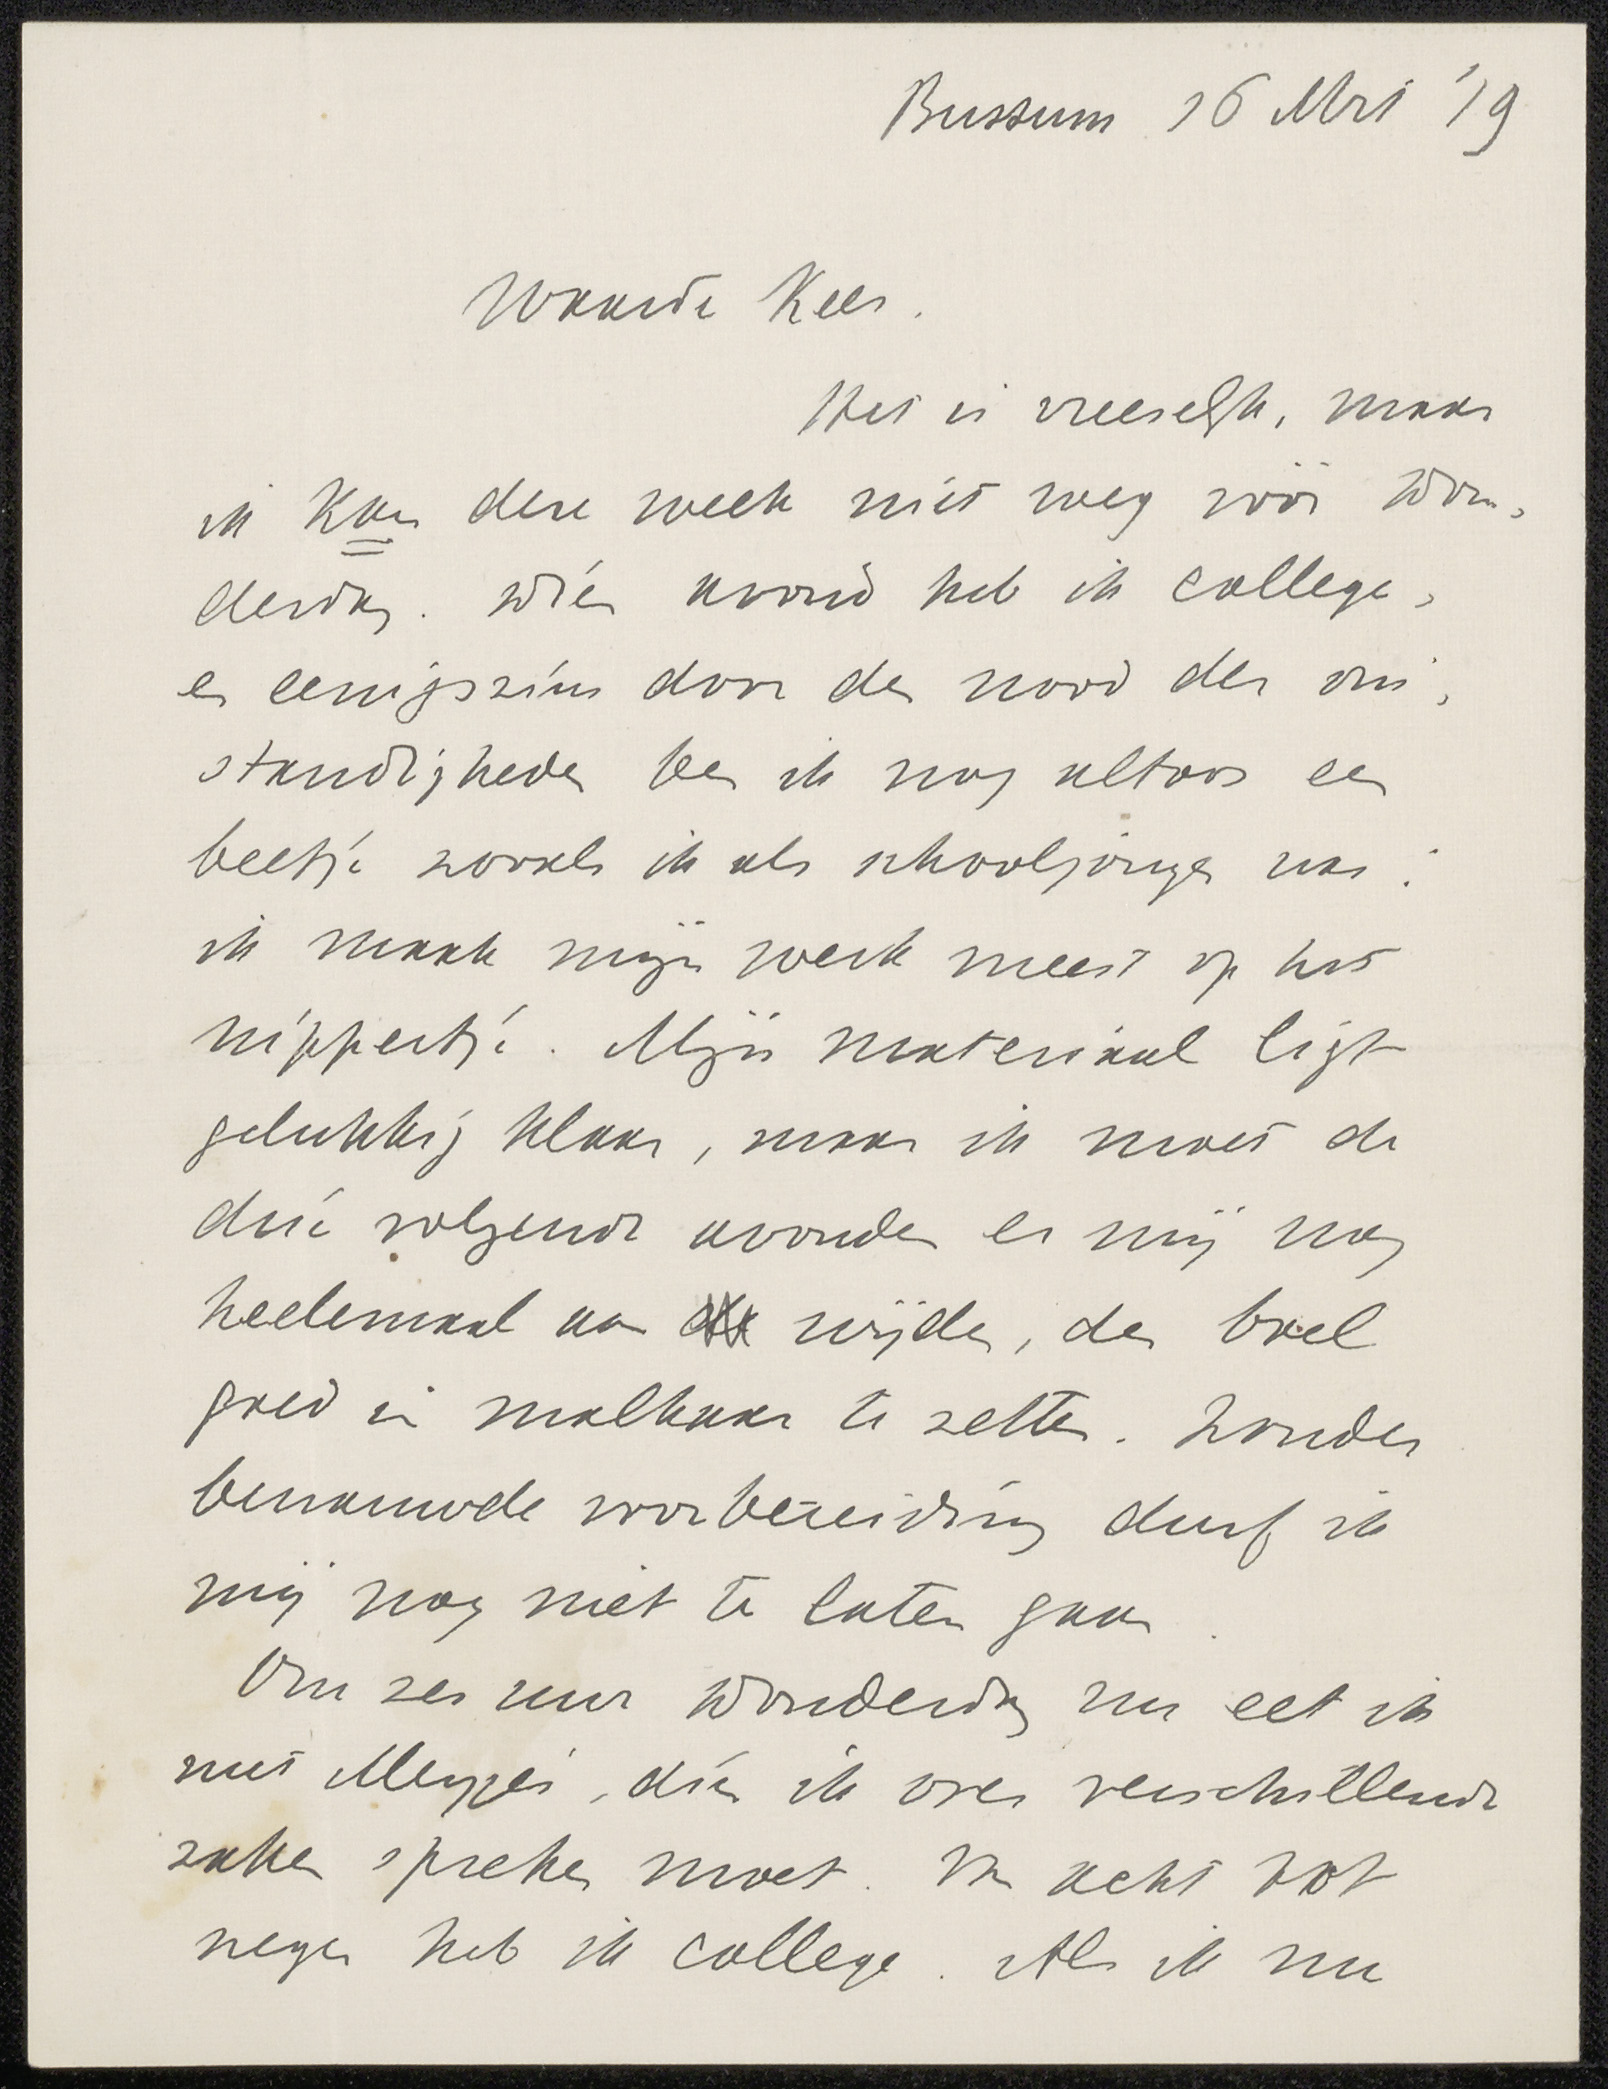 Bussum 16 Mrt '19
Waarde Kees.
Het is vreeselijk, maar
ik kan deze week niet weg vóór Don-
derdag. Dien avond heb ik college,
en eenigszins door den nood der om-
standigheden ben ik nog altoos een
beetje zooals ik als schooljongen was:
ik maak mijn werk meest op het
nippertje. Mijn materiaal ligt
gelukkig klaar, maar ik moet de
drie volgende avonden er mij nog
heelemaal aan wijden, den boel
goed in malkaar te zetten. Zonder
benaauwde voorbereiding durf ik
mij nog niet te laten gaan.
Om zes uur Donderdag nu eet ik
met , dien ik over verschillende
zaken spreken moet. Van acht tot
negen heb ik college. Als ik nu